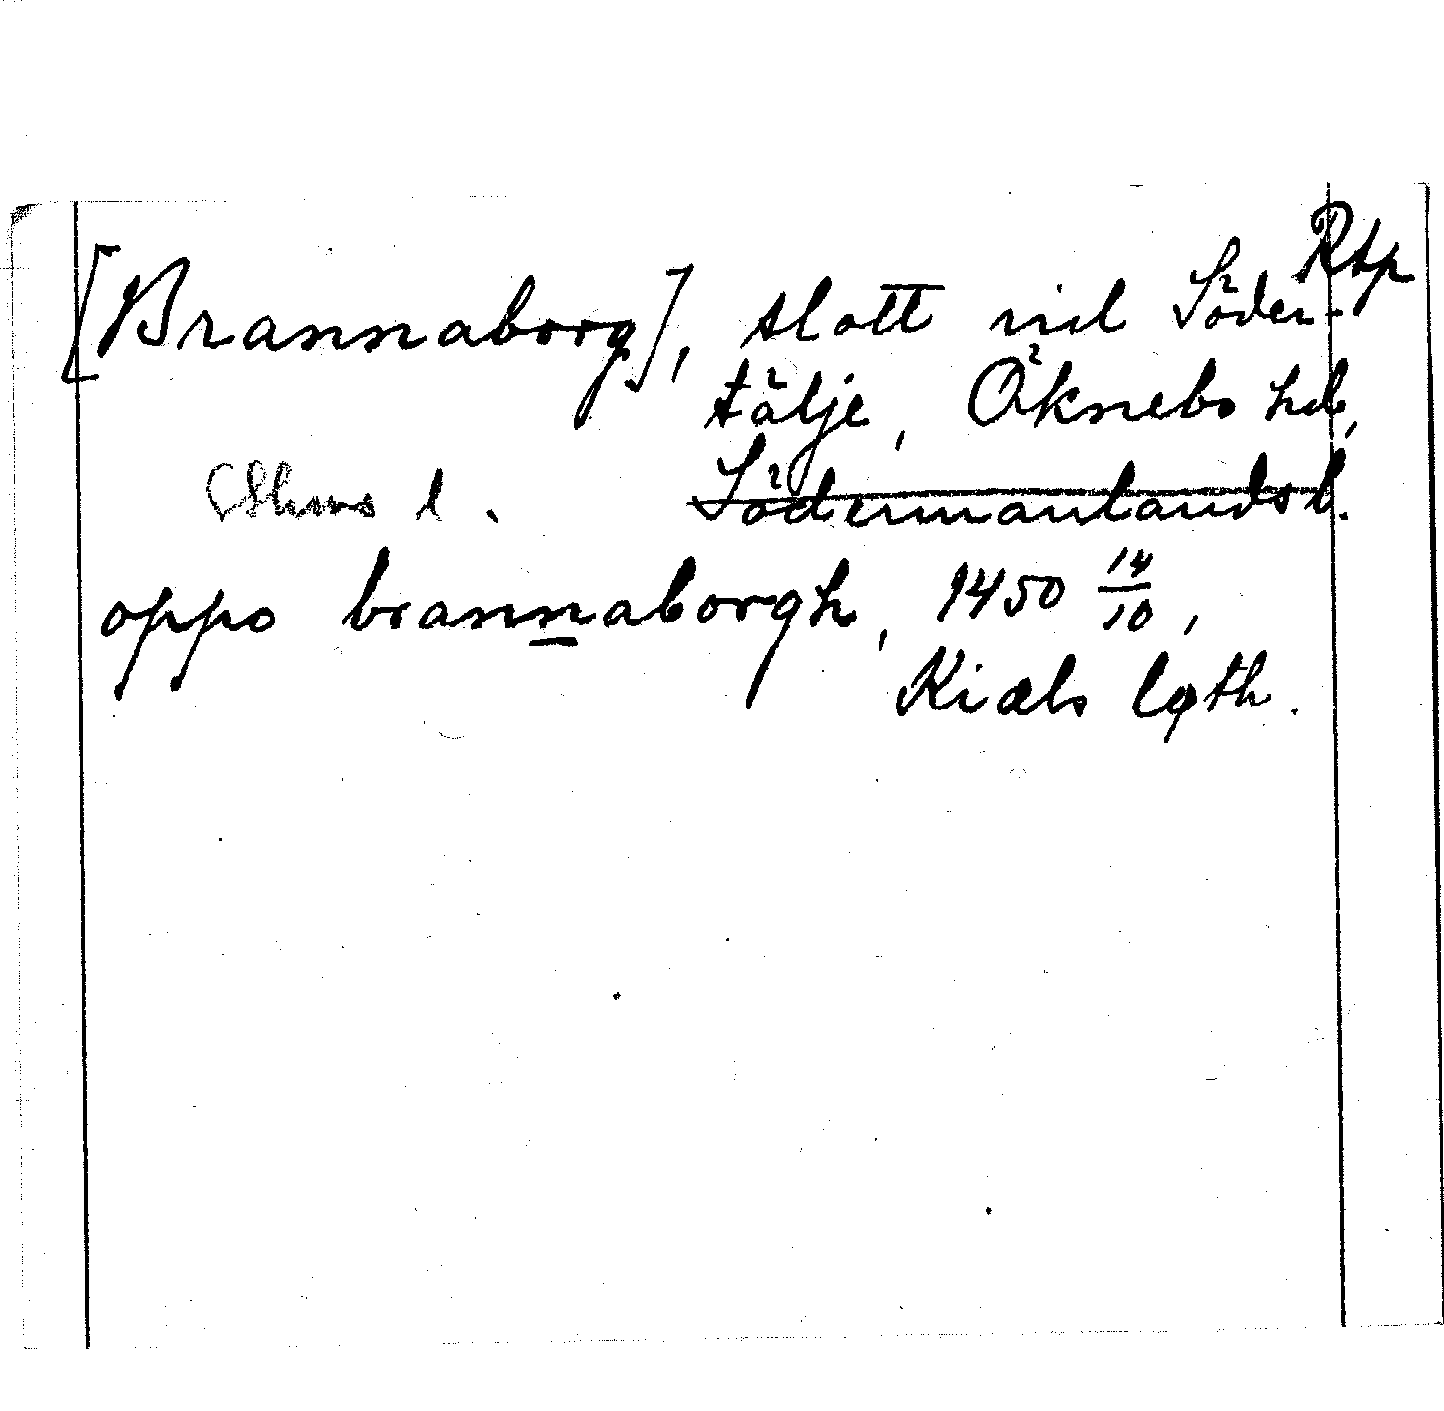 Rtp
[Brannaborg], slott vid Söder-
tälje, Öknebo hd,
Sthms l. Södermanlands l.
oppo brannaborgh, 1450 14/10,
Kials lgth.